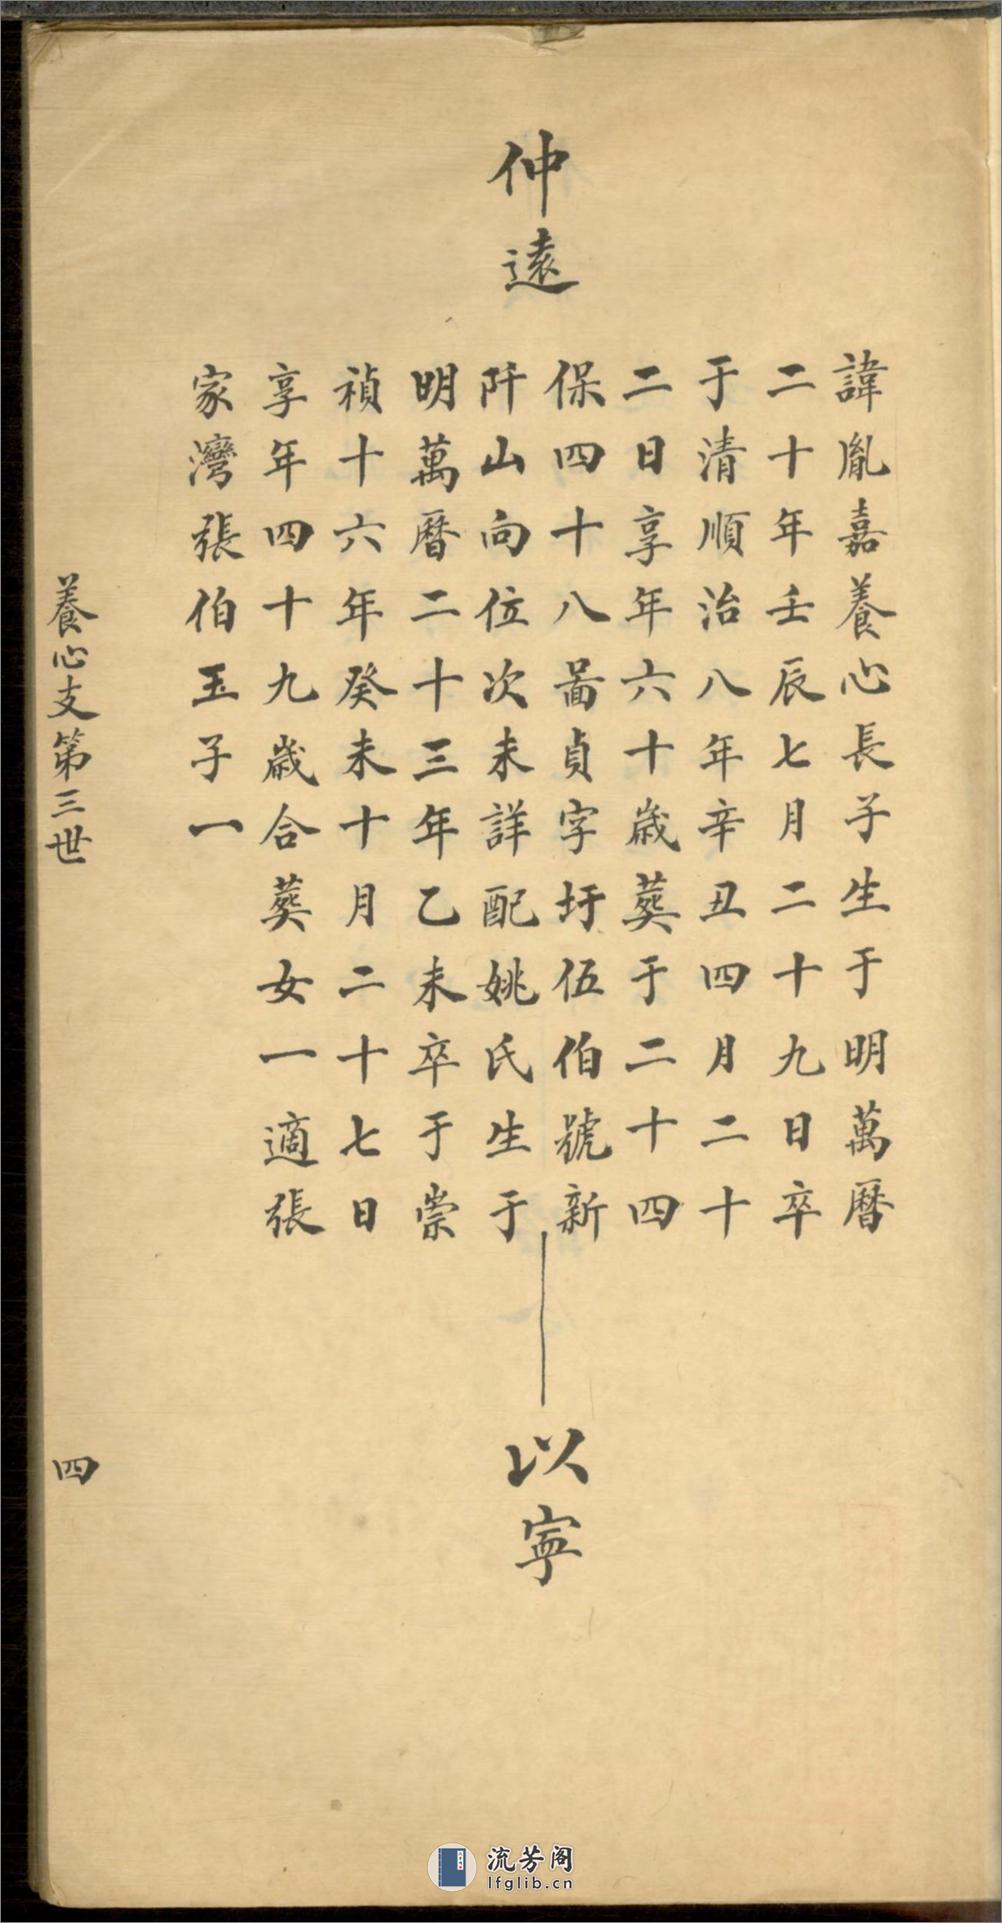 仲遠
諱胤嘉養心長子生于明萬曆
二十年壬辰七月二十九日卒
于清順治八年辛丑四月二十
二日享年六十歲葬于二十四
保四十八啚貞字圩伍伯號新
阡山向位次未詳配姚氏生于
明萬曆二十三年乙未卒于崇
禎十六年癸未十月二十七日
享年四十九歲合葬女一適張
家灣張伯玉子一
以寧
養心支第三世
四
流芳阁
lfglib.cn